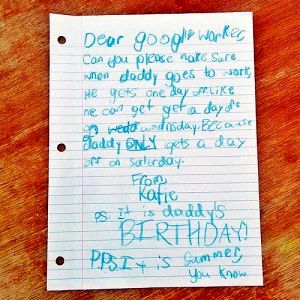 Dear google worker
Can you please make sure
when daddy goes to work,
He gets one day off. Like
he can get get a day off
on wedn wednesday. BECause
daddy ONLY gets a day
off on saturday.
From
Katie
ps. it is daddy's
BIRTHDAY!
P.PS It is summer,
You know